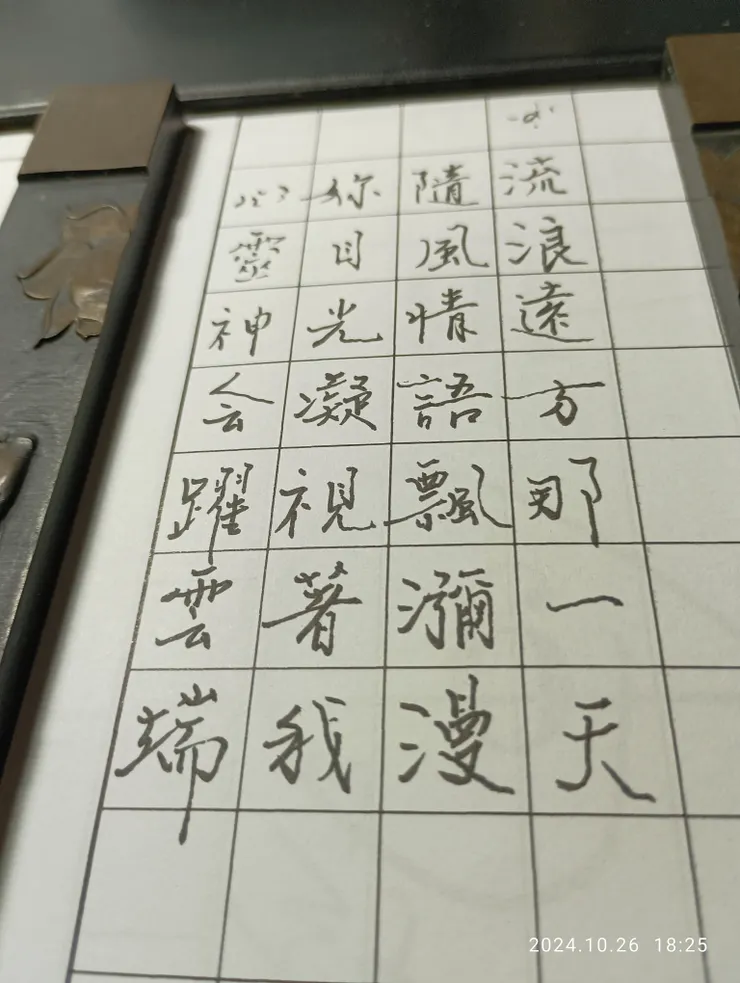 流浪遠方那一天
隨風情語飄瀰漫
妳目光凝視著我
心靈神会躍雲端
2024.10.26 18:25